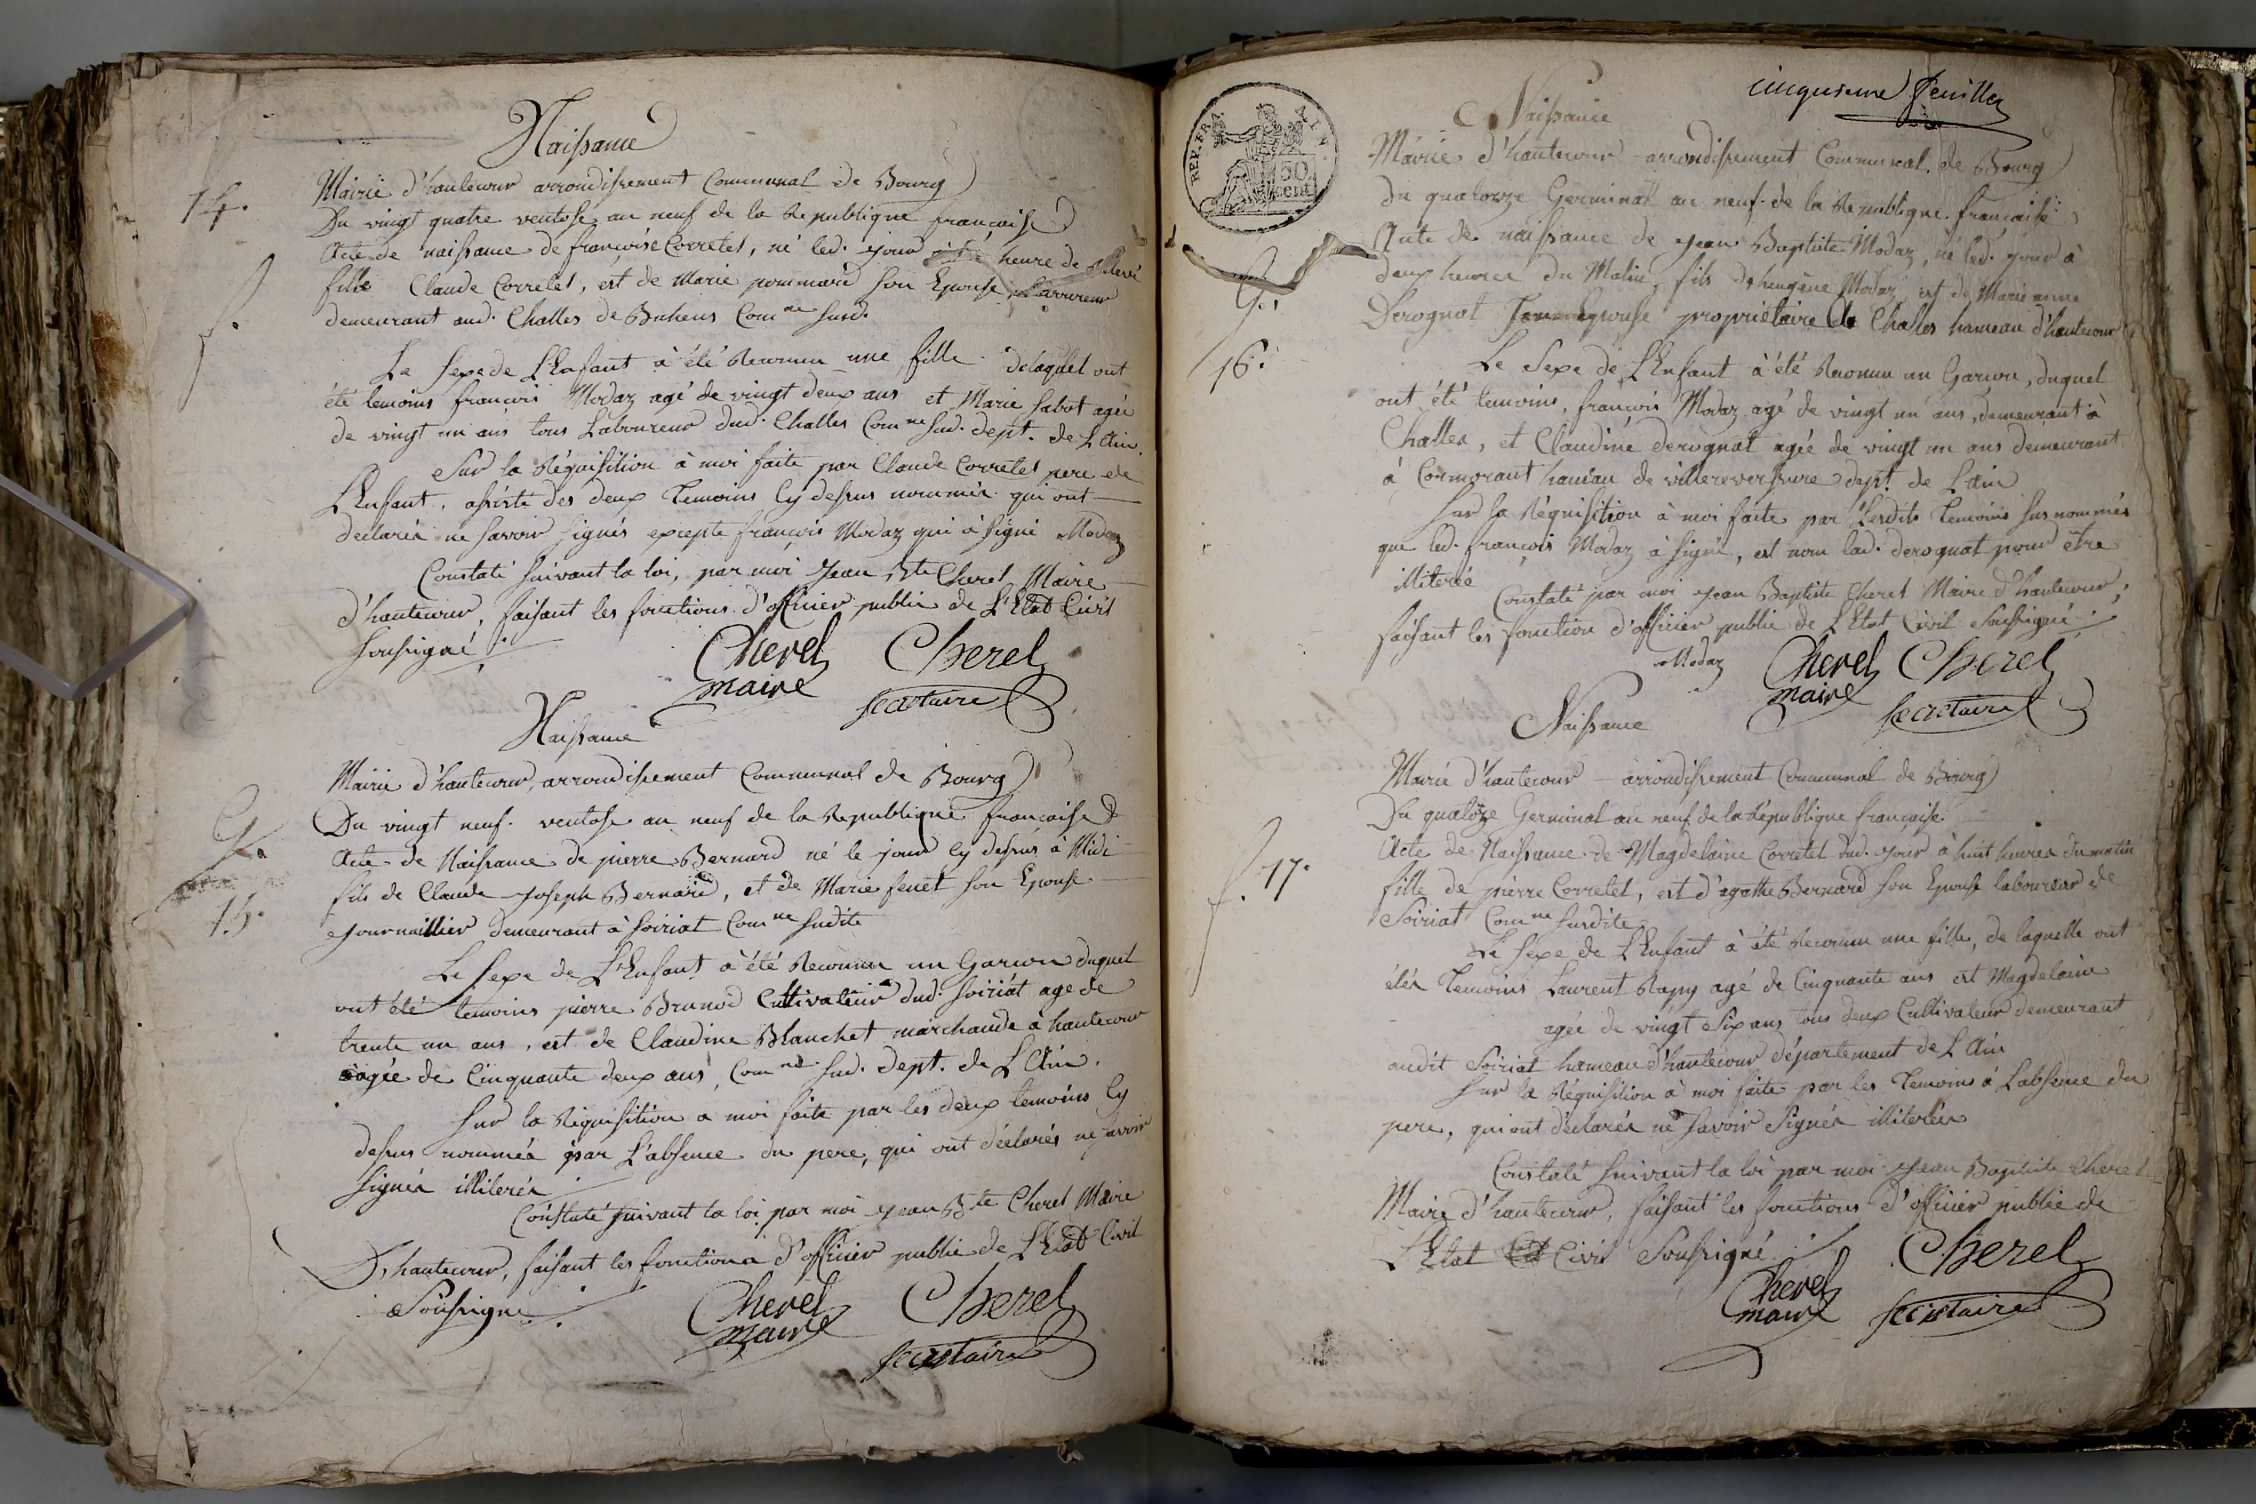 Naissance
14.
Mairie d'hautecour arrondissement Communal de Bourg
Du vingt quatre ventose an neuf de la Republique française
Acte de naissance de françoise Corretel, né led. jour heure de
fille Claude Corretel, est de Marie pommard son Epouse
f.
demeurant aud. Challes de Bohens Comne. susd.
Le sexe de L'Enfant à été Reconnu une fille delaquel ont
été temoins françois Modaz agé de vingt deux ans et Marie Sabot agée
de vingt un ans tous Laboureur dud. Challes Comne. Sud. dept. de L'Ain.
Sur la Réquisition à moi faite par Claude Corretel pere de
L'Enfant, assiste des deux Temoins Cy dessus nommés qui ont
declarés ne savoir signés excepte françois Modaz qui à signé Modaz
Constaté suivant la loi, par moi Jean Bte Cherel Maire
d'hautecour, faisant les fonctions d'officier public de L'Etat Civil
Soussigné
Cherel Cherel
maire secretaire
Naissance
Mairie d'hautecour, arrondissement Communal de Bourg
Du vingt neuf ventose an neuf de la Republique française
G.
Acte de Naissance de pierre Bernard né le jour Cy dessus à Midi
fils de Claude Joseph Bernard, et de Marie fenet son Epouse
15.
Journaillier demeurant à Soiriat Comne sudite
Le sexe de L'Enfant à été Reconnu un Garcon duquel
ont été temoins pierre Brunod Cultivateur dud. Soiriat age de
trente un ans, est de Claudine Blanchet marchande à hautecour
agée de Cinquante deux ans, Comne. Sud. dept. de L'Ain.
Sur la Réquisition a moi faite par les deux temoins Cy
dessus nommés par L'absence du pere, qui ont déclarés ne savoir
signés illiterés
Constaté suivant la loi par moi Jean Bte Cherel Maire
D'hautecour, faisant les fonctions d'officier public de L'Etat Civil
Soussigné
Cherel Cherel
maire secretaire
cinquieme feuillet
REP. FRA.
50
cent.
Naissance
Mairie d'hautecour arrondissement Communal de Bourg
Du quatorze Germinal an neuf de la Republique française
Acte de naissance de Jean Baptiste Modaz, né led. jour à
deux heures du Matin, fils d'heugene Modaz est de Marie anne
G.
Derognat Epouse propriétaire de Challes hameau d'hautecour
16.
Le Sexe de L'Enfant à été Reconnu un Garcon, duquel
ont été temoins, françois Modaz agé de vingt un ans, demeurant à
Challes, et Claudine derognat agée de vingt un ans demeurant
à Cormorant hameau de villereversure dept. de L'ain
Sur la Réquisition à moi faite par lesdits Temoins sus nommés
que led. françois Modaz à signé, est non lad. derognat pour être
illiteré
Constaté par moi Jean Baptiste Cherel Maire d'hautecour,
faisant les fonction d'officier public de L'Etat Civil Soussigné
Modaz Cherel Cherel
maire secretaire
Naissance
Mairie d'hautecour arrondissement Communal de Bourg
Du quatoze Germinal an neuf de la République française
Acte de Naissance de Magdelaine Corretel dud. jour à huit heures du matin
f. 17.
fille de pierre Corretel, est d'agathe Bernard son Epouse laboureur de
Soiriat Comne susdite
Le Sexe de L'Enfant à été Reconnu une fille, de laquelle ont
étés Temoins Laurent Rapy agé de Cinquante ans est Magdelaine
agée de vingt Six ans tous deux Cultivateur demeurant
audit Soiriat hameau d'hautecour département de L'Ain
Sur la Réquisition à moi faite par les Temoins à L'absence du
pere, qui ont déclarés ne Savoir Signés illiterés
Constaté Suivant la loi par moi Jean Baptiste Cherel
Maire d'hautecour, faisant les fonctions d'officier public de
L'Etat Civil Soussigné
Cherel Cherel
maire secretaire